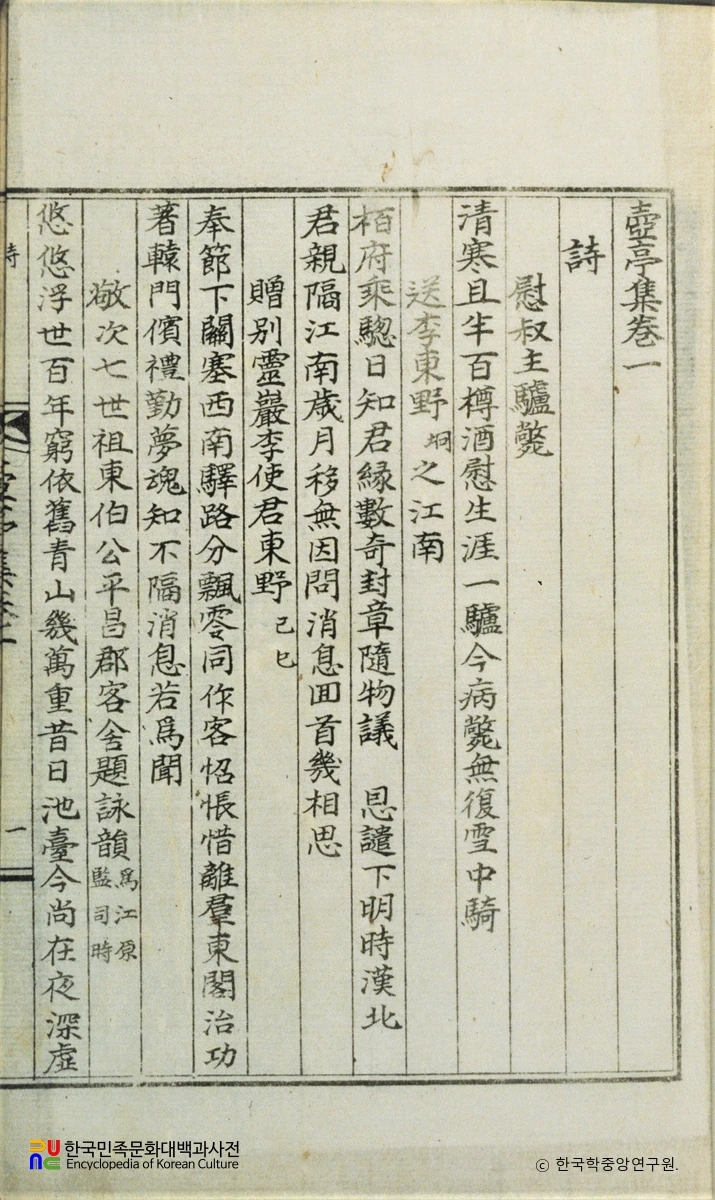 壺亭集卷一
詩
慰叔主驢斃
清寒且半百樽酒慰生涯一驢今病斃無復雪中騎
送李東野坰之江南
栢府乘驄日知君緣數奇封章隨物議 恩譴下明時漢北
君親隔江南歲月移無因問消息回首幾相思
贈別靈巖李使君東野己巳
奉節下關塞西南驛路分飄零同作客怊悵惜離羣東閣治功
著轅門儐禮勤夢魂知不隔消息若爲聞
敬次七世祖東伯公平昌郡客舍題詠韻爲江原監司時
悠悠浮世百年窮依舊青山幾萬重昔日池臺今尚在夜深虛
詩
一
한국민족문화대백과사전
Encyclopedia of Korean Culture
© 한국학중앙연구원.